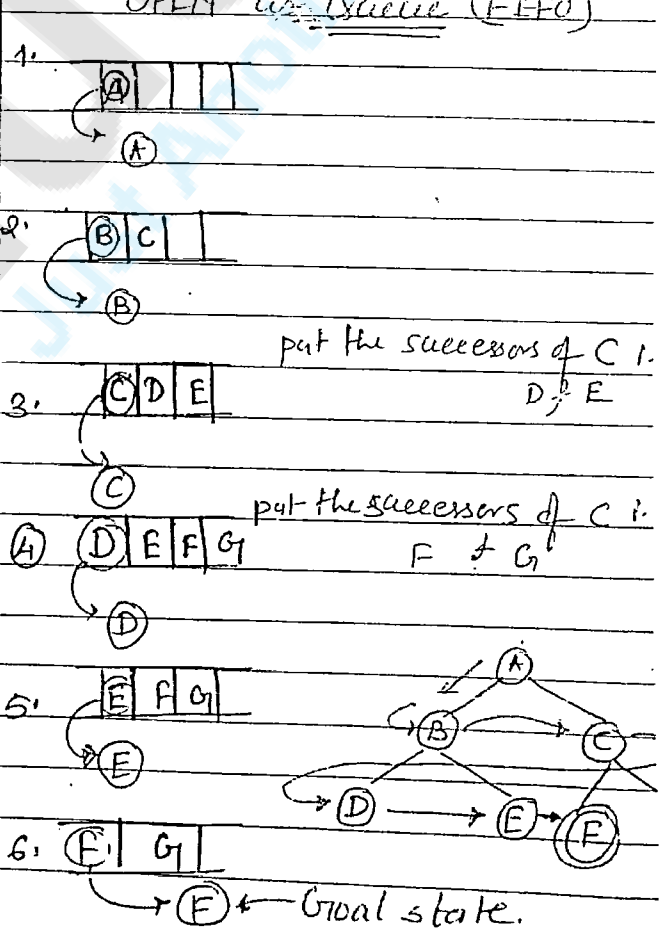 OPEN as Queue (FIFO)
1. A
A
2. B C
B
put the successors of C i.
D & E
3. C D E
C
put the successors of C i.
F & G
4 D E F G
D
5. E F G
E
6. F G
F ← Goal state.
A
B C
D E F